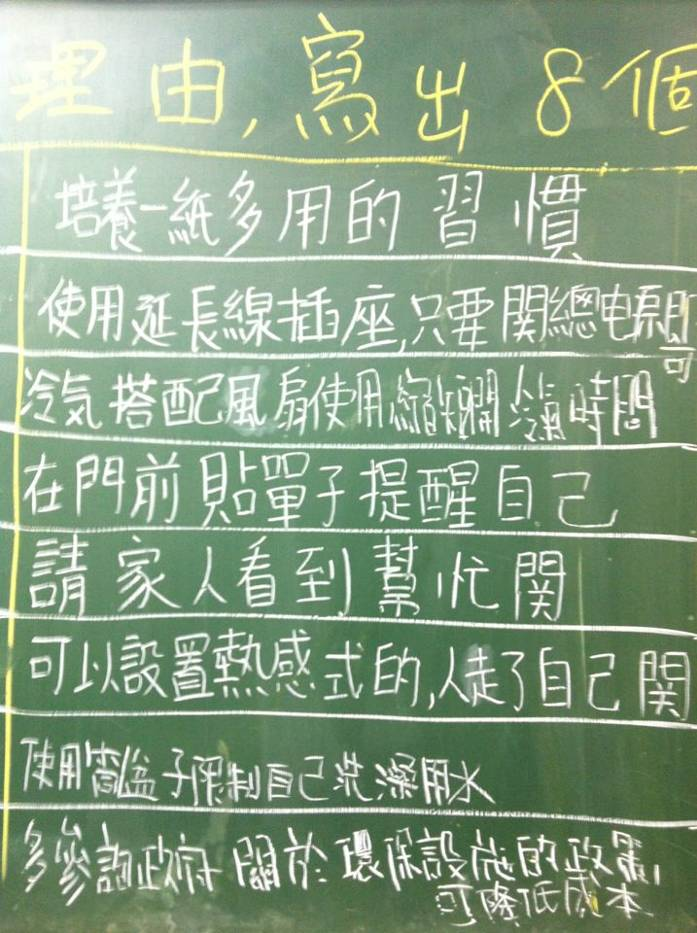 理由,寫出8個
培養一紙多用的習慣
使用延長線插座,只要関總电源即可
冷気搭配風扇使用縮短開冷氣時間
在門前貼單子提醒自己
請家人看到幫忙関
可以設置熱感式的,人走了自己関
使用臉盆子限制自己洗澡用水
多參詢政府關於環保設施的政策,
可降低成本